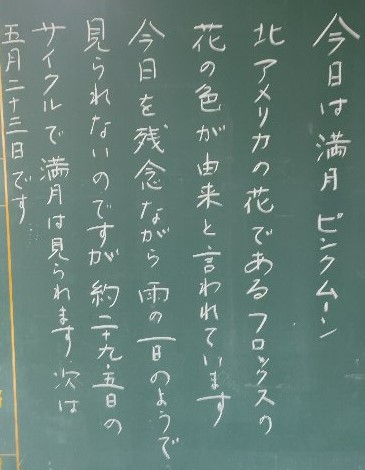 今日は満月 ピンクムーン
北アメリカの花であるフロックスの
花の色が由来と言われています
今日を残念ながら雨の一日のようで
見られないのですが 約二十九.五日の
サイクルで満月は見られます 次は
五月二十三日です